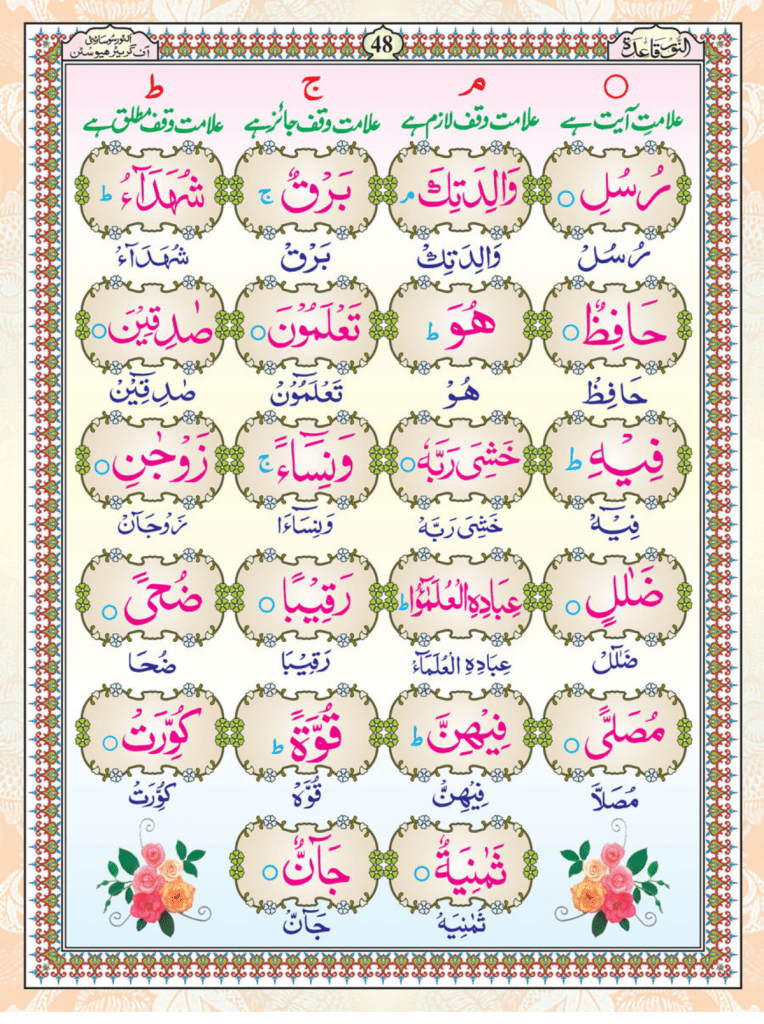 النور قاعدہ
48
النور سوسائٹی
آف گریٹر ہیوسٹن
○ مـ ج ط
علامتِ آیت ہے علامت وقف لازم ہے علامت وقف جائز ہے علامت وقف مطلق ہے
رُسُلِ ○ وَالِدَتِكَ مـ بَرْقٌ ج شُهَدَآءُ ط
رُسُلْ وَالِدَتِكْ بَرْقْ شُهَدَآءْ
حَافِظٌ ○ هُوَ ط تَعْلَمُوْنَ ○ صٰدِقِيْنَ ○
حَافِظْ هُوْ تَعْلَمُوْنْ صٰدِقِيْنْ
فِيْهِ ط خَشِیَ رَبَّهٗ ○ وَنِسَآءً ج زَوْجٰنِ ○
فِيْهْ خَشِیَ رَبَّهْ وَنِسَآءَا زَوْجَآنْ
ضَلٰلٍ ○ عِبَادِهِ الْعُلَمٰٓؤُا ط رَقِيْبًا ○ ضُحًى ○
ضَلٰٓلْ عِبَادِهِ الْعُلَمَآءْ رَقِيْبَا ضُحَا
مُصَلًّى ○ فِيْهِنَّ ط قُوَّةً ط كُوِّرَتْ ○
مُصَلَّا فِيْهِنَّ قُوَّهْ كُوِّرَتْ
ثَمٰنِيَةٌ ○ جَآنٌّ ○
ثَمٰنِيَهْ جَآنّْ